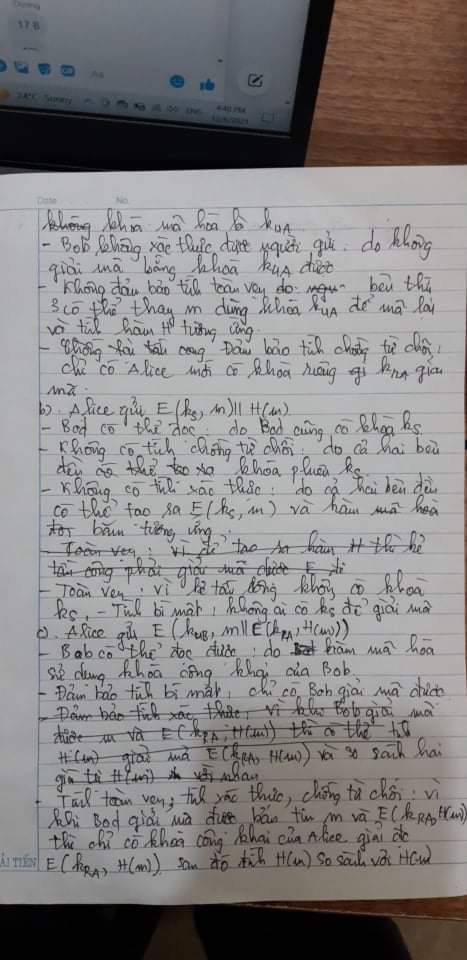 17 B
Aa
24°C Sunny
ENG
4:40 PM
Date No.
không khoá mã hoá là kUA
- Bob không xác thực được người gửi. do không
giải mã bằng khoá kUA được
- Không đảm bảo tính toàn vẹn do bên thứ
3 có thể thay m dùng khoá kUA để mã lại
và tính hàm H tương ứng.
- Đảm bảo tính chống từ chối:
chỉ có Alice mới có khoá riêng kRA giải
mã.
b). Alice gửi E(kS, m)|| H(m)
- Bod có thể đọc: do Bod cũng có khoá kS
- Không có tính chống từ chối: do cả hai bên
đều có thể tạo ra khoá phiên kS
- Không có tính xác thực: do cả hai bên đều
có thể tạo ra E(kS, m) và hàm mã hoá
băm tương ứng.
- Toàn vẹn: vì để tạo ra hàm H thì kẻ
tấn công phải giải mã được E
- Toàn vẹn: vì kẻ tấn công không có khoá
kS. - Tính bí mật: không ai có kS để giải mã
c). Alice gửi E(kUB, m||E(kRA, H(m)))
- Bob có thể đọc được: do hàm mã hoá
sử dụng khoá công khai của Bob.
- Đảm bảo tính bí mật: chỉ có Bob giải mã được
- Đảm bảo tính xác thực, vì khi Bob giải mã
được m và E(kRA, H(m)) thì có thể tính
H(m) giải mã E(kRA, H(m)) và so sánh hai
giá trị H(m) với nhau
- Tính toàn vẹn, tính xác thực, chống từ chối: vì
khi Bod giải mã được bản tin m và E(kRA, H(m))
thì chỉ có khoá công khai của Alice giải đc
ẢI TIẾN E(kRA, H(m)), sau đó tính H(m) so sánh với H(m)